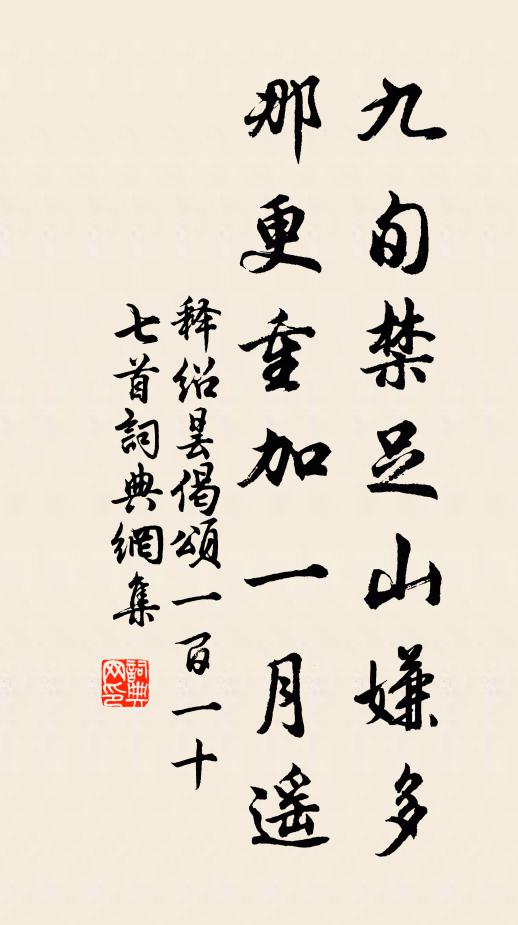 九旬禁足山嫌多
那更重加一月遥
释绍昙偈颂一百一十
七首詞典網集
詞典
网印